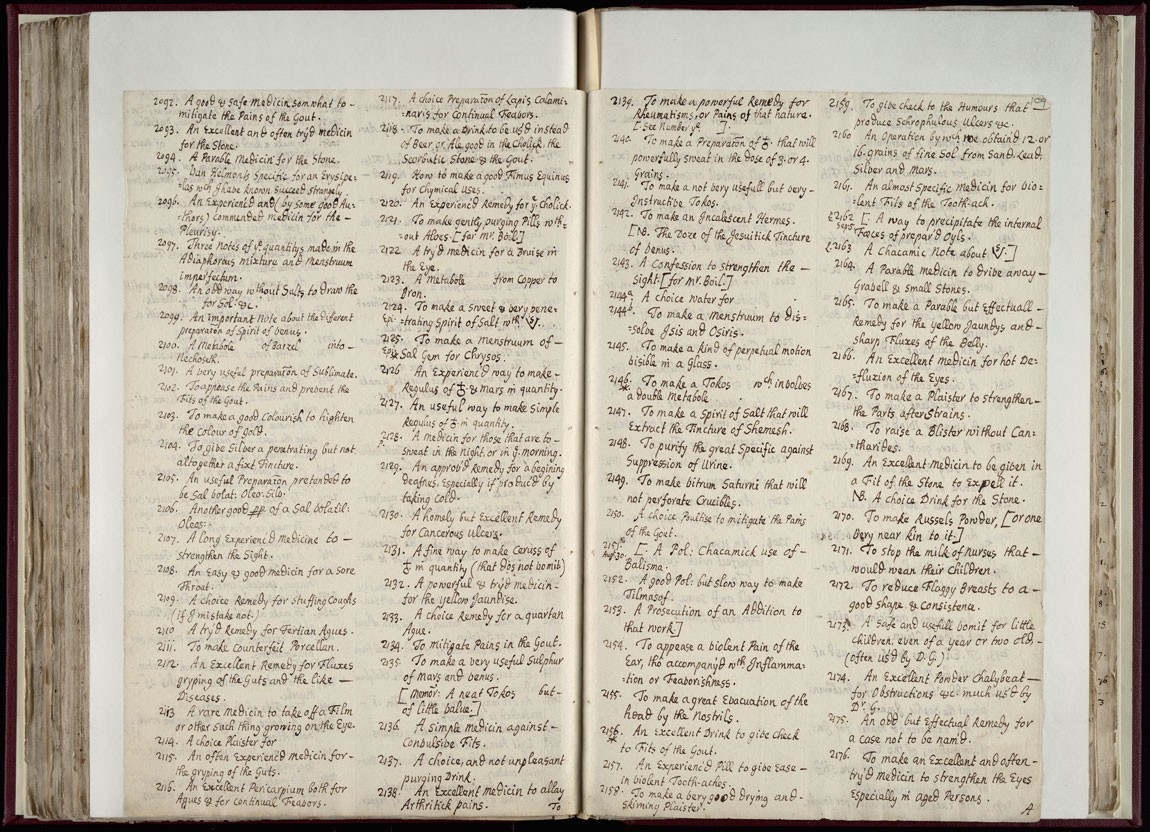 2092. A good & safe medicin somwhat to -
mitigate the Pains of the Gout.
2093. An Excellent and often try'd medicin
for the Stone.
2094. A Parable medicin for the Stone.
2095. Van Helmonts Specific for an Erysipe-
=las wch I have known succeed strangely.
2096. An Experienc'd and (by some good Au-
=thors) commended medicin for the -
Pleurisy.
2097. Three Notes of ye quantitys made in the
Adiaphorous mixture and menstruum
imperfectum.
2098. An odd way without Salts to Draw the
for Sol: &c.
2099. An important Note about the different
preparation of Spirit of Venus.
2100. A Metabole of Barzel into -
Nechoseth.
2101. A very useful preparation of Sublimate.
2102. To appease the Pains and prevent the
Fits of the Gout.
2103. To make a good Colourish to highten
the Colour of gold.
2104. To give Silver a penetrating but not
altogether a fixt Tincture.
2105. An useful Preparation pretended to
be Sal Volat: Oleo: Silv:
2106. Another good pp. of a Sal Volatil:
Oleos:
2107. A long Experienc'd medicine to -
strengthen the Sight.
2108. An Easy & good medicin for a Sore
Throat.
2109. A choice Remedy for Stuffing Coughs
(if I mistake not.)
2110 A try'd Remedy for Tertian Agues.
2111. To make Counterfeit Porcellan.
2112. An Excellent Remedy for Fluxes
gryping of the Guts and the like -
Diseases.
2113 A rare Medicin to take off a Film
or other Such thing growing on the Eye.
2114. A choice Plaister for
2115. An often Experienc'd medicin for -
the gryping of the Guts.
2116. An Excellent Pericarpium both for
Agues & for continual Feavors.
2117. A choice Preparation of Lapis Calami-
=naris for Continual Feavors.
2118. To make a Drink to be us'd instead
of Beer or Ale, good in the Cholick, the
Scorbutic Stone & the Gout.
2119. How to make a good Fimus Equinus
for Chymical uses.
2120. An Experienc'd Remedy for ye Cholick.
2121. To make gently purging Pills with=
=out Aloes. [for Mr. Boil]
2122 A try'd medicin for a Bruise in
the Eye.
2123. A Metabole from Copper to
Iron.
2124. To make a Sweet & very pene=
=trating Spirit of Salt wth
2125. To make a menstruum of -
Sal Gem for Chrysos.
2126 An Experienc'd way to make -
Regulus of ♁ & Mars in quantity.
2127. An useful way to make Simple
Regulus of ♁ in quantity.
2128. A medicin for those that are to -
sweat in the night, or in ye morning.
2129. An approv'd Remedy for a begining
deafnes, Especially if produc'd by
taking Cold.
2130. A homely but Excellent Remedy
for Cancerous Ulcers.
2131. A fine way to make Ceruss of
♁ in quantity (that dos not vomit)
2132. A powerful & try'd medicin -
for the yellow Jaundise.
2133. A choice Remedy for a quartan
Ague.
2134. To mitigate Pains in the Gout.
2135 To make a very useful Sulphur
of Mars and Venus.
[Memor: A neat Tokos but -
of little value.]
2136. A Simple medicin against -
Convulsive Fits.
2137. A choice, and not unpleasant
purging Drink.
2138. An Excellent medicin to allay
Arthritick pains. To
2139. To make a powerful Remedy for
Rheumatisms, or Pains of that nature.
[See Number ye ].
2140. To make a Preparation of ♁ that will
powerfully sweat in the dose of 3. or 4.
Grains.
2141. To make a not very usefull but very -
Instructive Tokos.
2142. To make an Incalescent Hermes.
[NB. The Doze of the Jesuitick Tincture
of Venus.
2143. A Confession to strengthen the -
Sight. [for Mr. Boil.]
2144a. A choice Water for
2144b. To make a Menstruum to Dis=
=solve Isis and Osiris.
2145. To make a kind of perpetual motion
visible in a Glass.
2146. To make a Tokos wch involves
a double Metabole
2147. To make a Spirit of Salt that will
Extract the Tincture of Shemesh.
2148. To purify the great Specific against
Suppression of Urine.
2149. To make Vitrum Saturni that will
not perforate Crucibles.
2150. A choice Poultise to mitigate the Pains
of the Gout.
2151. [: A Pol: Chacamick use of -
Balisma.
2152. A good Pol: but slow way to make
Tilmasof.
2153. A Prosecution of an Addition to
that work.]
2154. To appease a violent Pain of the
Ear, tho' accompany'd wth Inflamma:
=tion or Feavorishness.
2155. To make a great Evacuation of the
head by the Nostrils.
2156. An Excellent Drink to give check
to Fits of the Gout.
2157. An Experienc'd Pill to give Ease -
in violent Tooth-aches.
2158. To make a very good Drying and -
skinning Plaister.
2159. To give check to the Humours that
produce Schrophulous Ulcers &c.
2160 An Operation by wch we obtain'd 12. or
16. grains of fine Sol from Sand, Lead,
Silver and Mars.
2161. An almost Specific medicin for vio=
=lent Fits of the Tooth-ach.
2162 [: A way to precipitate the internal
Fæces of prepar'd Oyls.
2163 A Chacamic Note about .]
2164. A Parable medicin to drive away -
Gravell & small Stones.
2165. To make a Parable but Effectuall -
Remedy for the Yellow Jaundys and -
sharp Fluxes of the Belly.
2166. An Excellent medicin for hot De=
=fluxion of the Eyes.
2167. To make a Plaister to strengthen -
the Parts after Strains.
2168. To raise a Blister without Can=
=tharides.
2169. An Excellent medicin to be given in
a Fit of the Stone to Expell it.
NB. A choice Drink for the Stone.
2170. To make Russels Powder, [or one
Very near kin to it.]
2171. To stop the milk of Nurses that -
would wean their Children.
2172. To reduce Flaggy Breasts to a -
good shape & Consistence.
2173. A Safe and usefull Vomit for little
Children, even of a year or two old, -
(often us'd by D. G.)
2174. An Excellent Powder Chalybeat -
for Obstructions &c. much us'd by
Dr. G.
2175. An odd but Effectual Remedy for
a case not to be nam'd.
2176. To make an Excellent and often -
try'd medicin to strengthen the Eyes
Especially in aged Persons.
A